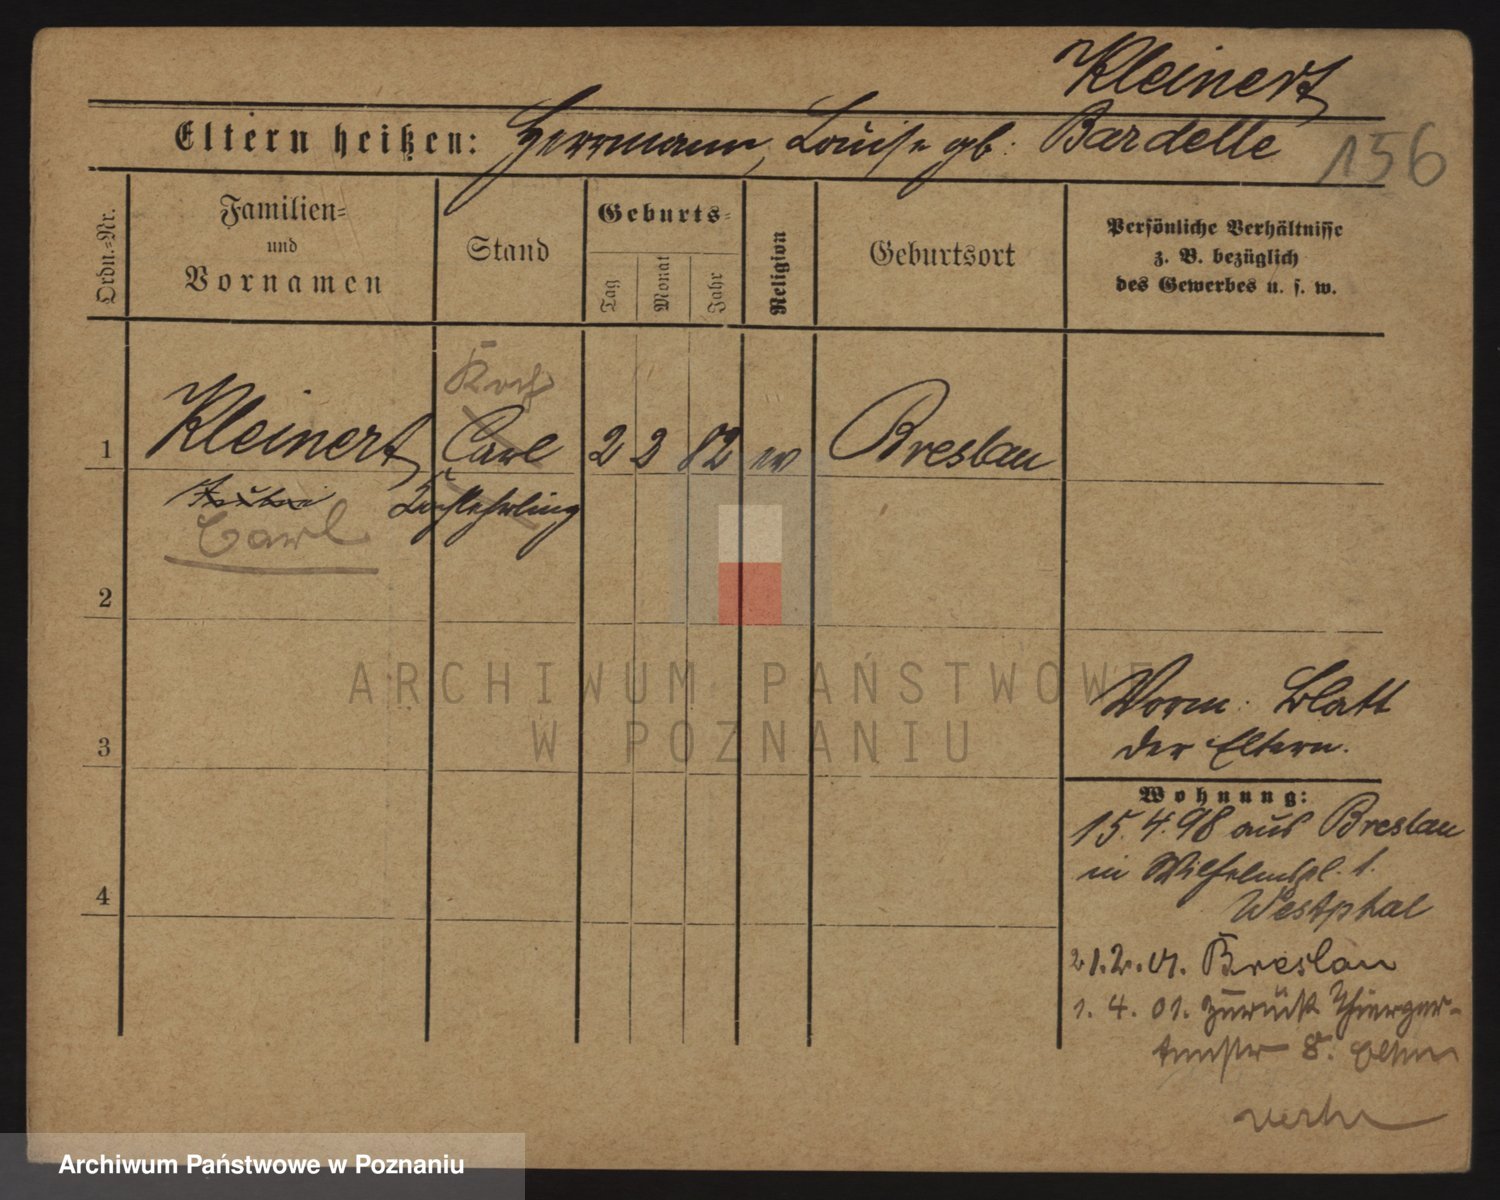 Kleinert
Eltern heißen: Herrmann, Louise gb. Bardelle 156
Ordn.-Nr.
Familien- und Vornamen
Stand
Geburts-
Tag
Monat
Jahr
Religion
Geburtsort
Persönliche Verhältnisse
z. B. bezüglich
des Gewerbes u. s. w.
Koch
1 Kleinert Carl 2 2 82 ev Breslau
Kochlehrling
Carl
2
ARCHIWUM PAŃSTWOWE
W POZNANIU
Vorm. Blatt
der Eltern.
3
Wohnung:
15.4.98 aus Breslau
in Wilhelmspl. 1.
Westphal
4
21.2.01. Breslau
1. 4. 01. zurück Thiergar-
tenstr 8.
Archiwum Państwowe w Poznaniu